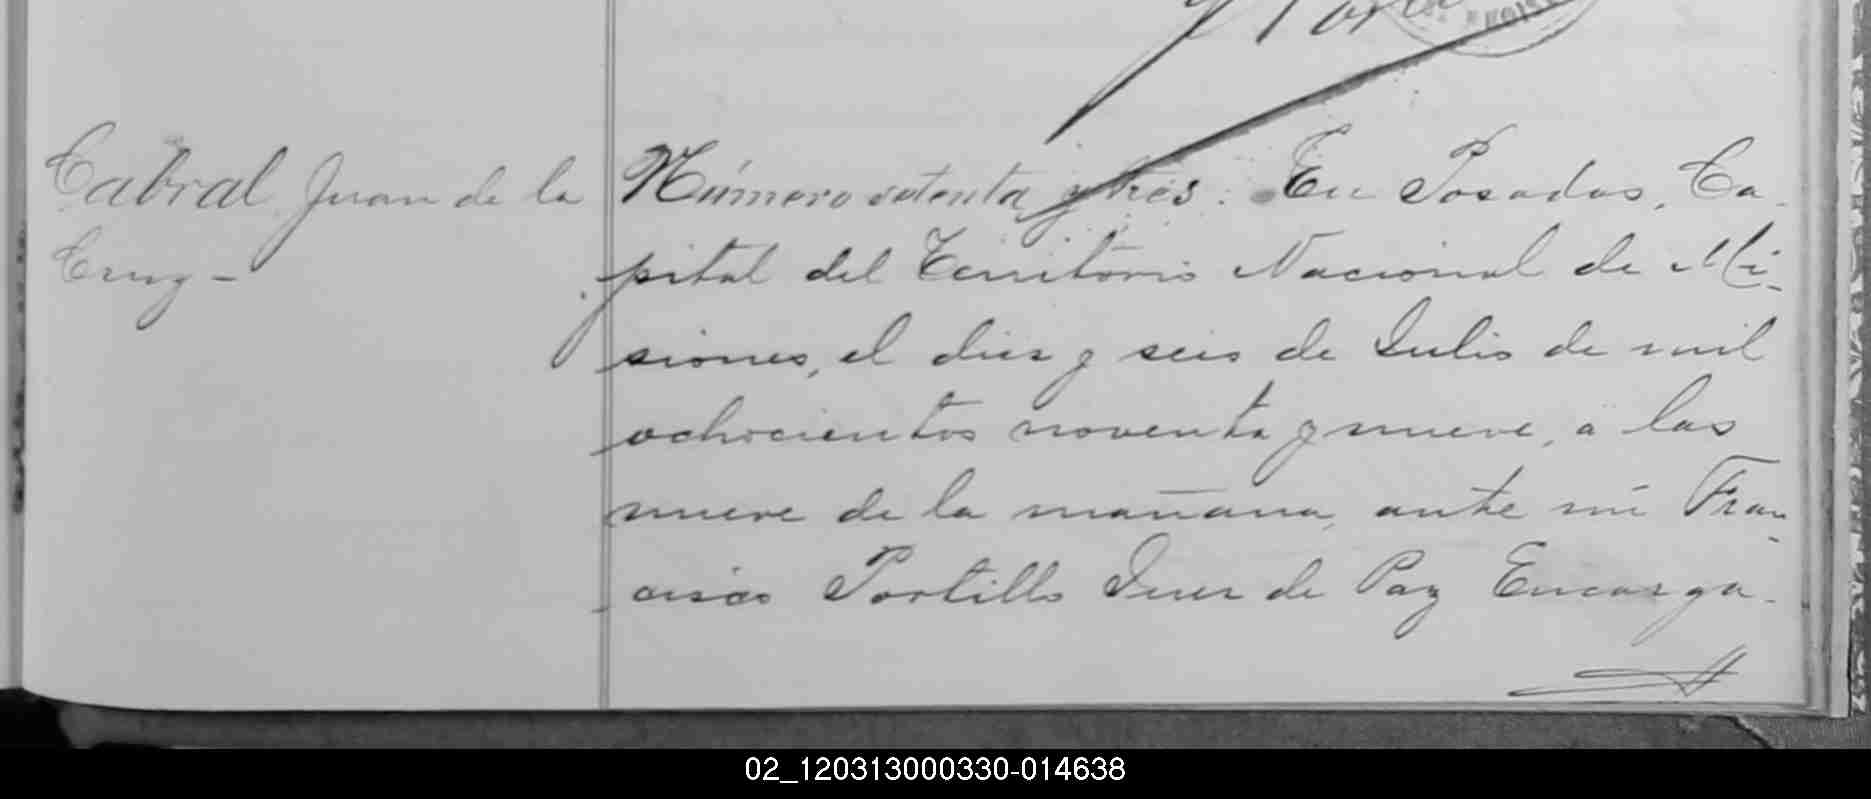 Cabral Juan de la
Cruz -
Número setenta y tres. En Posadas, Ca-
pital del Territorio Nacional de Mi-
siones, el diez y seis de Julio de mil
ochocientos noventa y nueve, a las
nueve de la mañana, ante mí Fran-
cisco Portillo Juez de Paz Encarga-
02_120313000330-014638